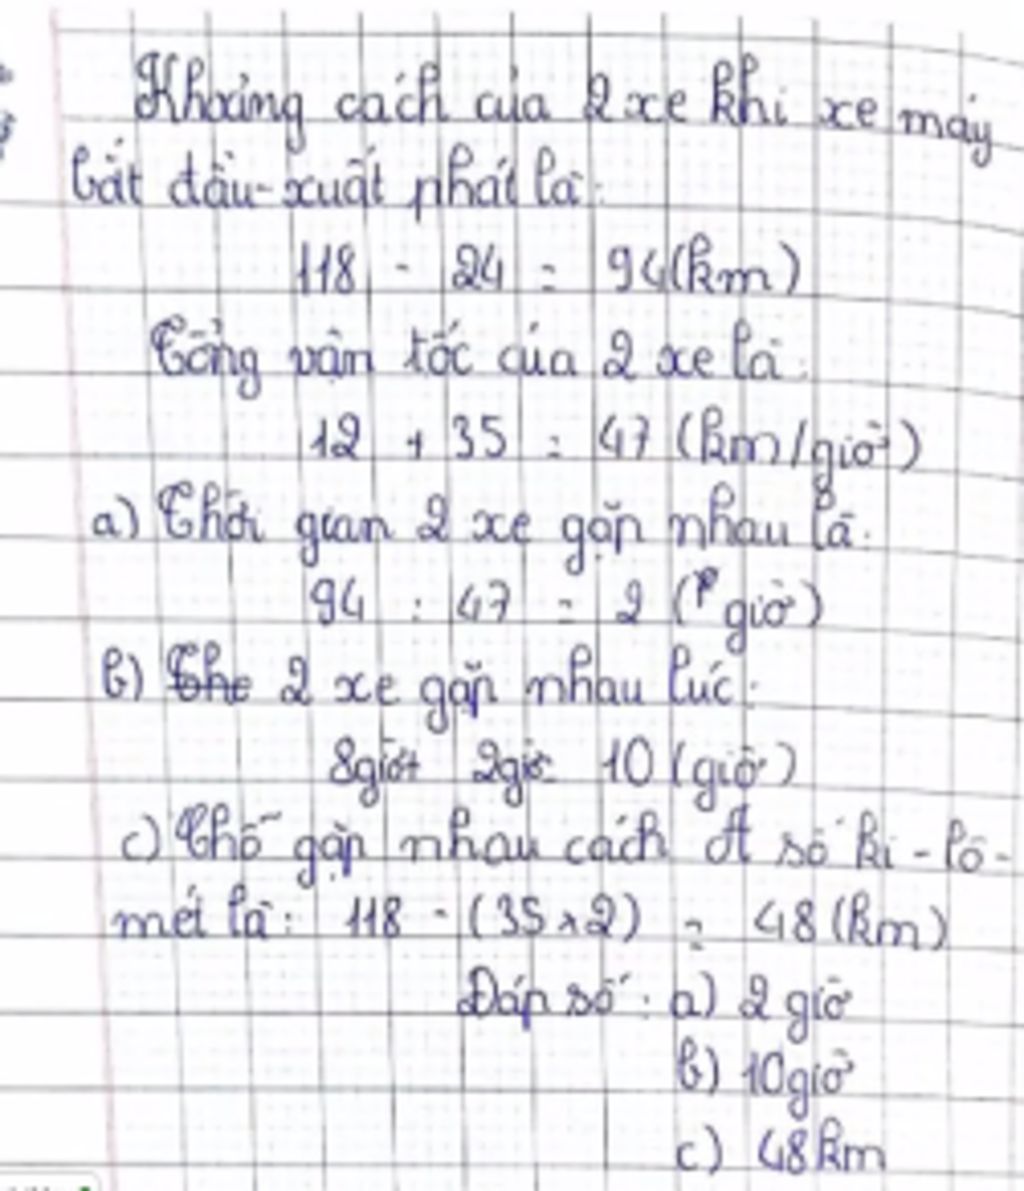 Khoảng cách của 2 xe khi xe máy
bắt đầu xuất phát là:
118 - 24 = 94 (km)
Tổng vận tốc của 2 xe là:
12 + 35 = 47 (km/giờ)
a) Thời gian 2 xe gặp nhau là:
94 : 47 = 2 (giờ)
b) 2 xe gặp nhau lúc:
8giờ + 2giờ = 10 (giờ)
c) Chỗ gặp nhau cách A số ki-lô-
mét là: 118 - (35 x 2) = 48 (km)
Đáp số: a) 2 giờ
b) 10giờ
c) 48km